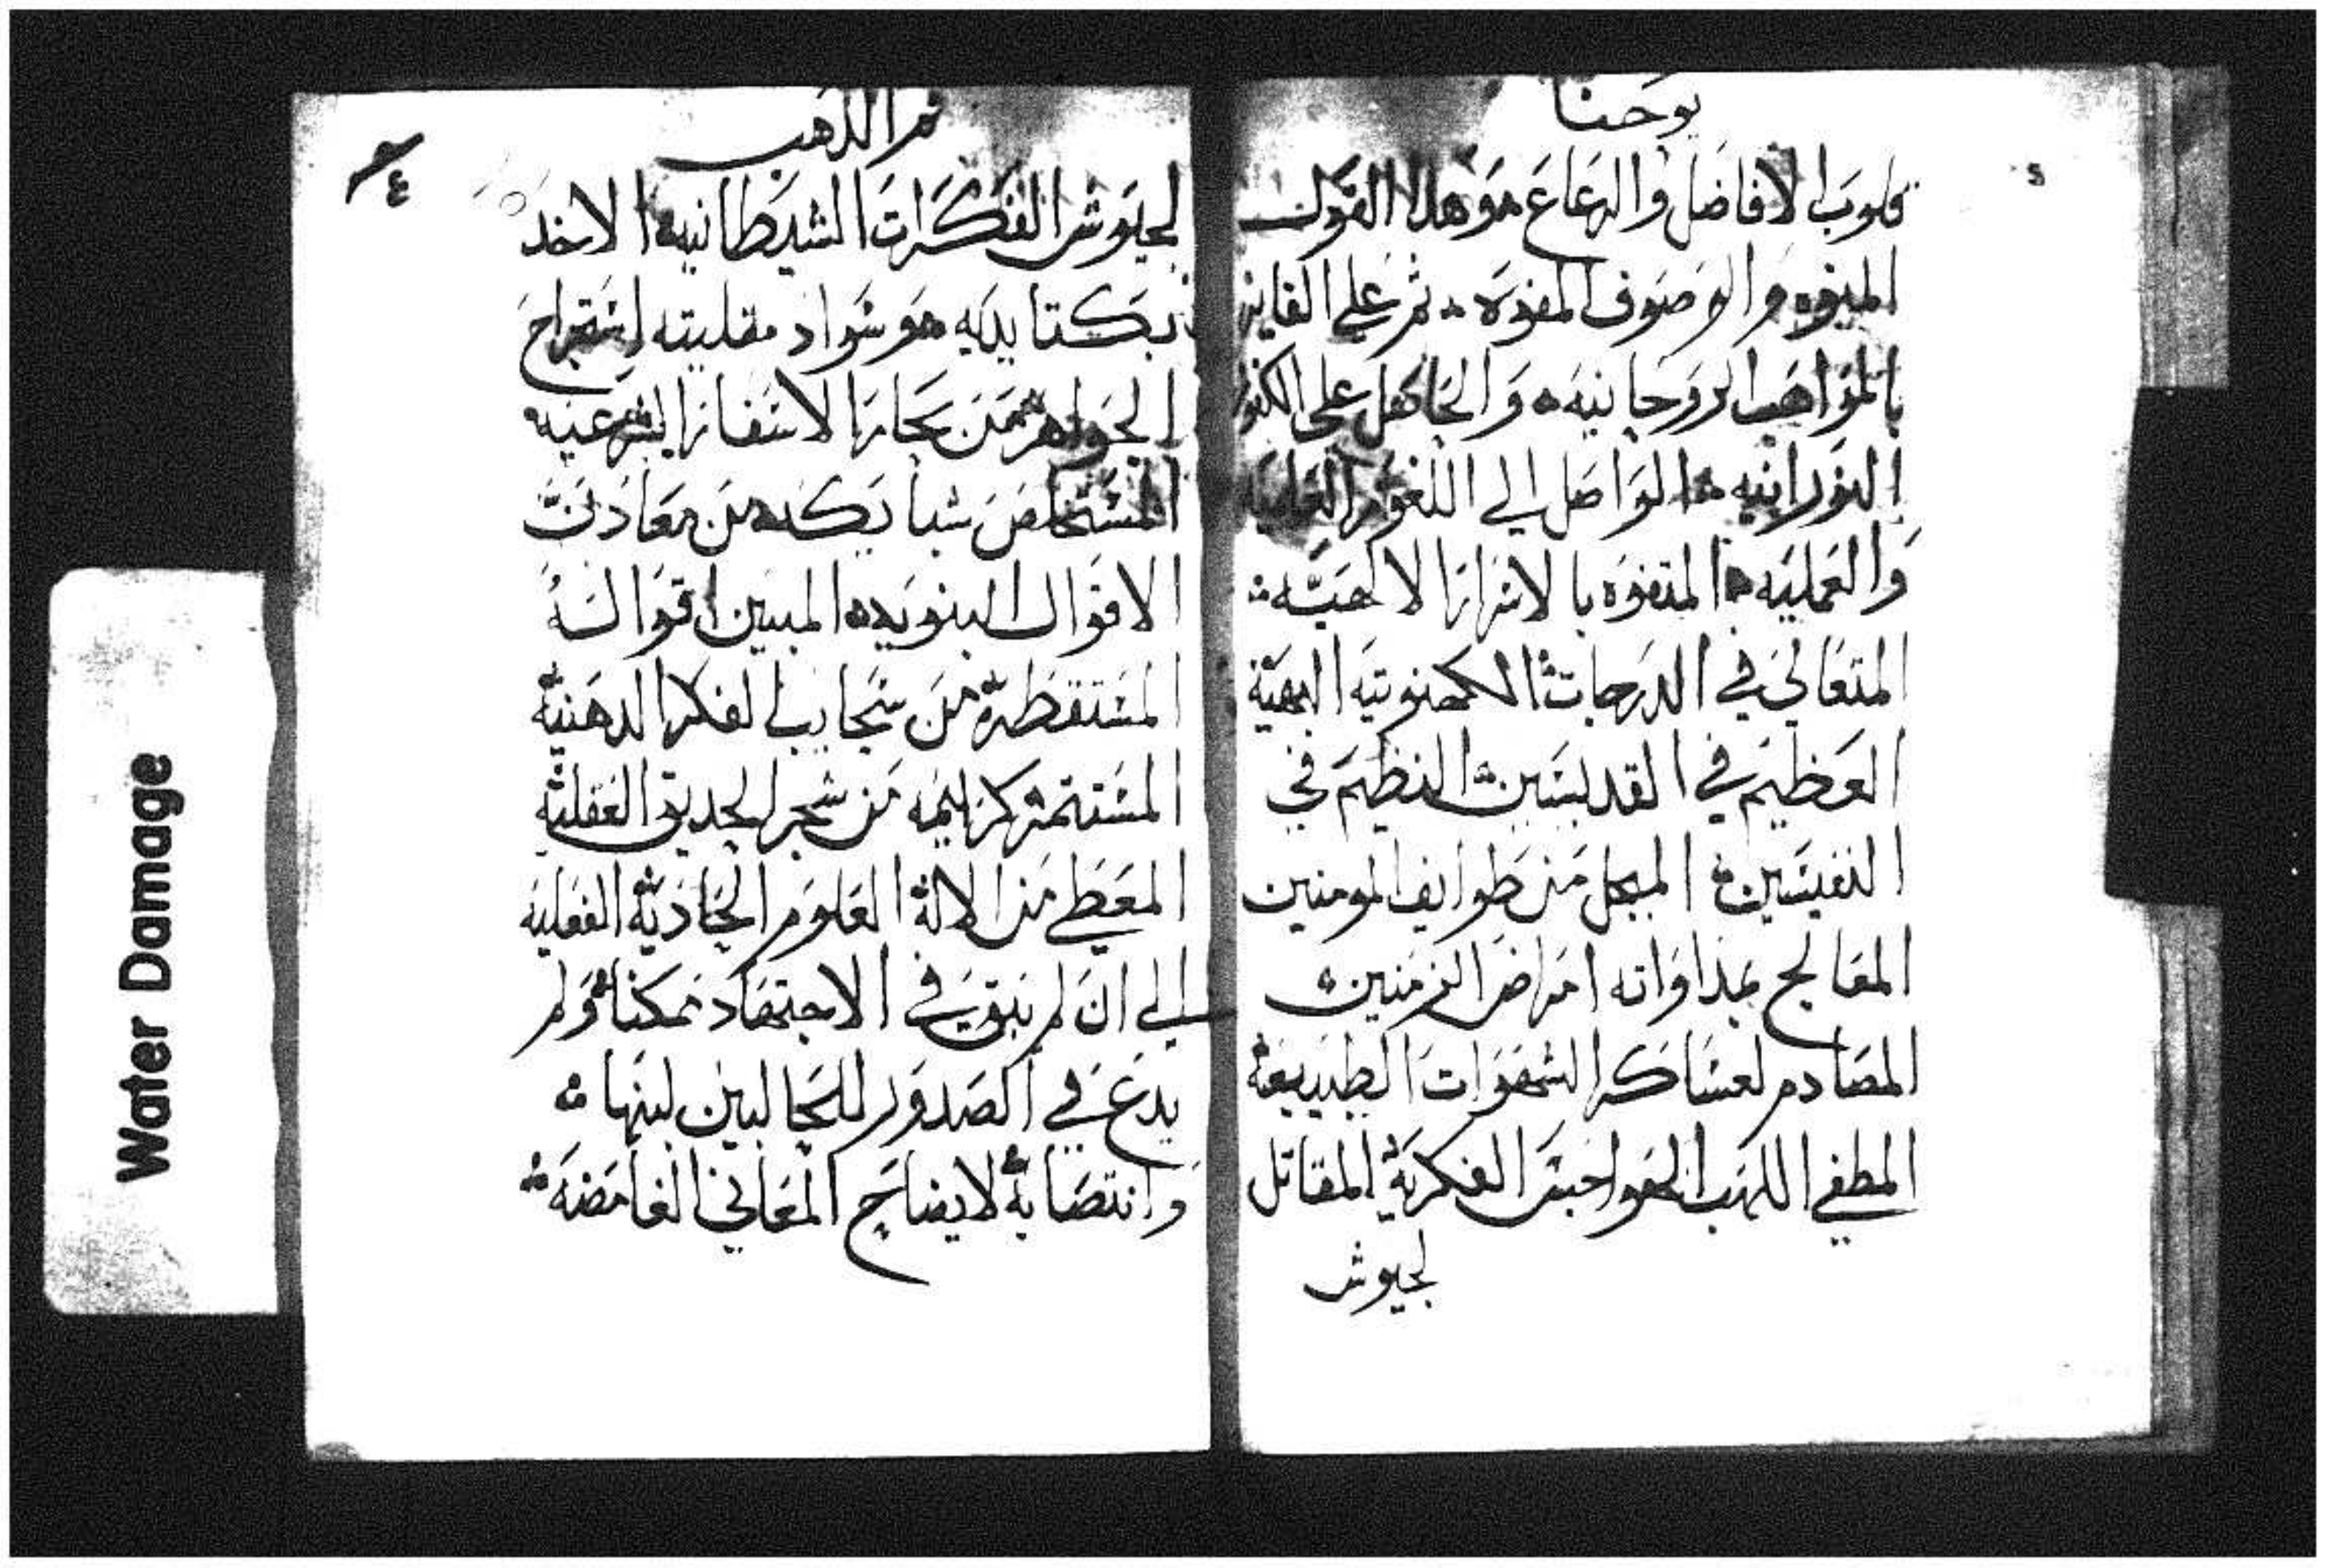 يوحنا
قلوب الافاضل والرعاع هو هدا القول
المفوه ثم علي الفايز
بالمواهب الروحانيه والحاصل علي الكنوز
النورانيه الواصل الي
والعمليه المتفوه بالاسرار الالاهيه
المتعالي في الدرجات الكهنوتيه البهية
العظيم في القديسين النظيم في
النفيسين المبجل من طوايف المومنين
المعالج بمداواته امراض الزمنين
المصادم لعساكر الشهوات الطبيعة
المطفي اللهب الفكرية المقاتل
لجيوش
فم الدهب
لجيوش الفكرات الشيطانيه الاخد
بكتا يديه هو سواد مقليته استخراج
الجواهر من بحار الاسفار الشرعيه
المستخلص من معادن
الاقوال البنويه المبين اقواله
المستقطرة من سحايب الفكر الدهنية
من شجر الحديق العقلية
المعطي من الالة العلوم الفعلية
الي ان لم يبق في الاجتهاد ممكنا ولم
يدع في الصدور للحالبين لبنها
وانتصابه لايضاح المعاني الغامضه
٤
5
Water Damage